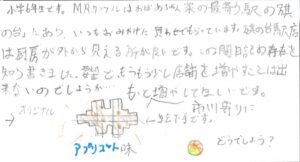 小学6年生です。MRワッフルはおばあちゃん家の最寄り駅の旗
の台にあり、いつもおみやげに買わせてもらっています。旗の台駅店
は厨房が外から見える所が良いです。この間日記の存在を
知り書きました。もうちょっと店舗を増やすことは出
来ないのでしょうか…もっと増やしてほしいです。
市川寄りに
→オリジナル
アプリコット味
どうでしょう?